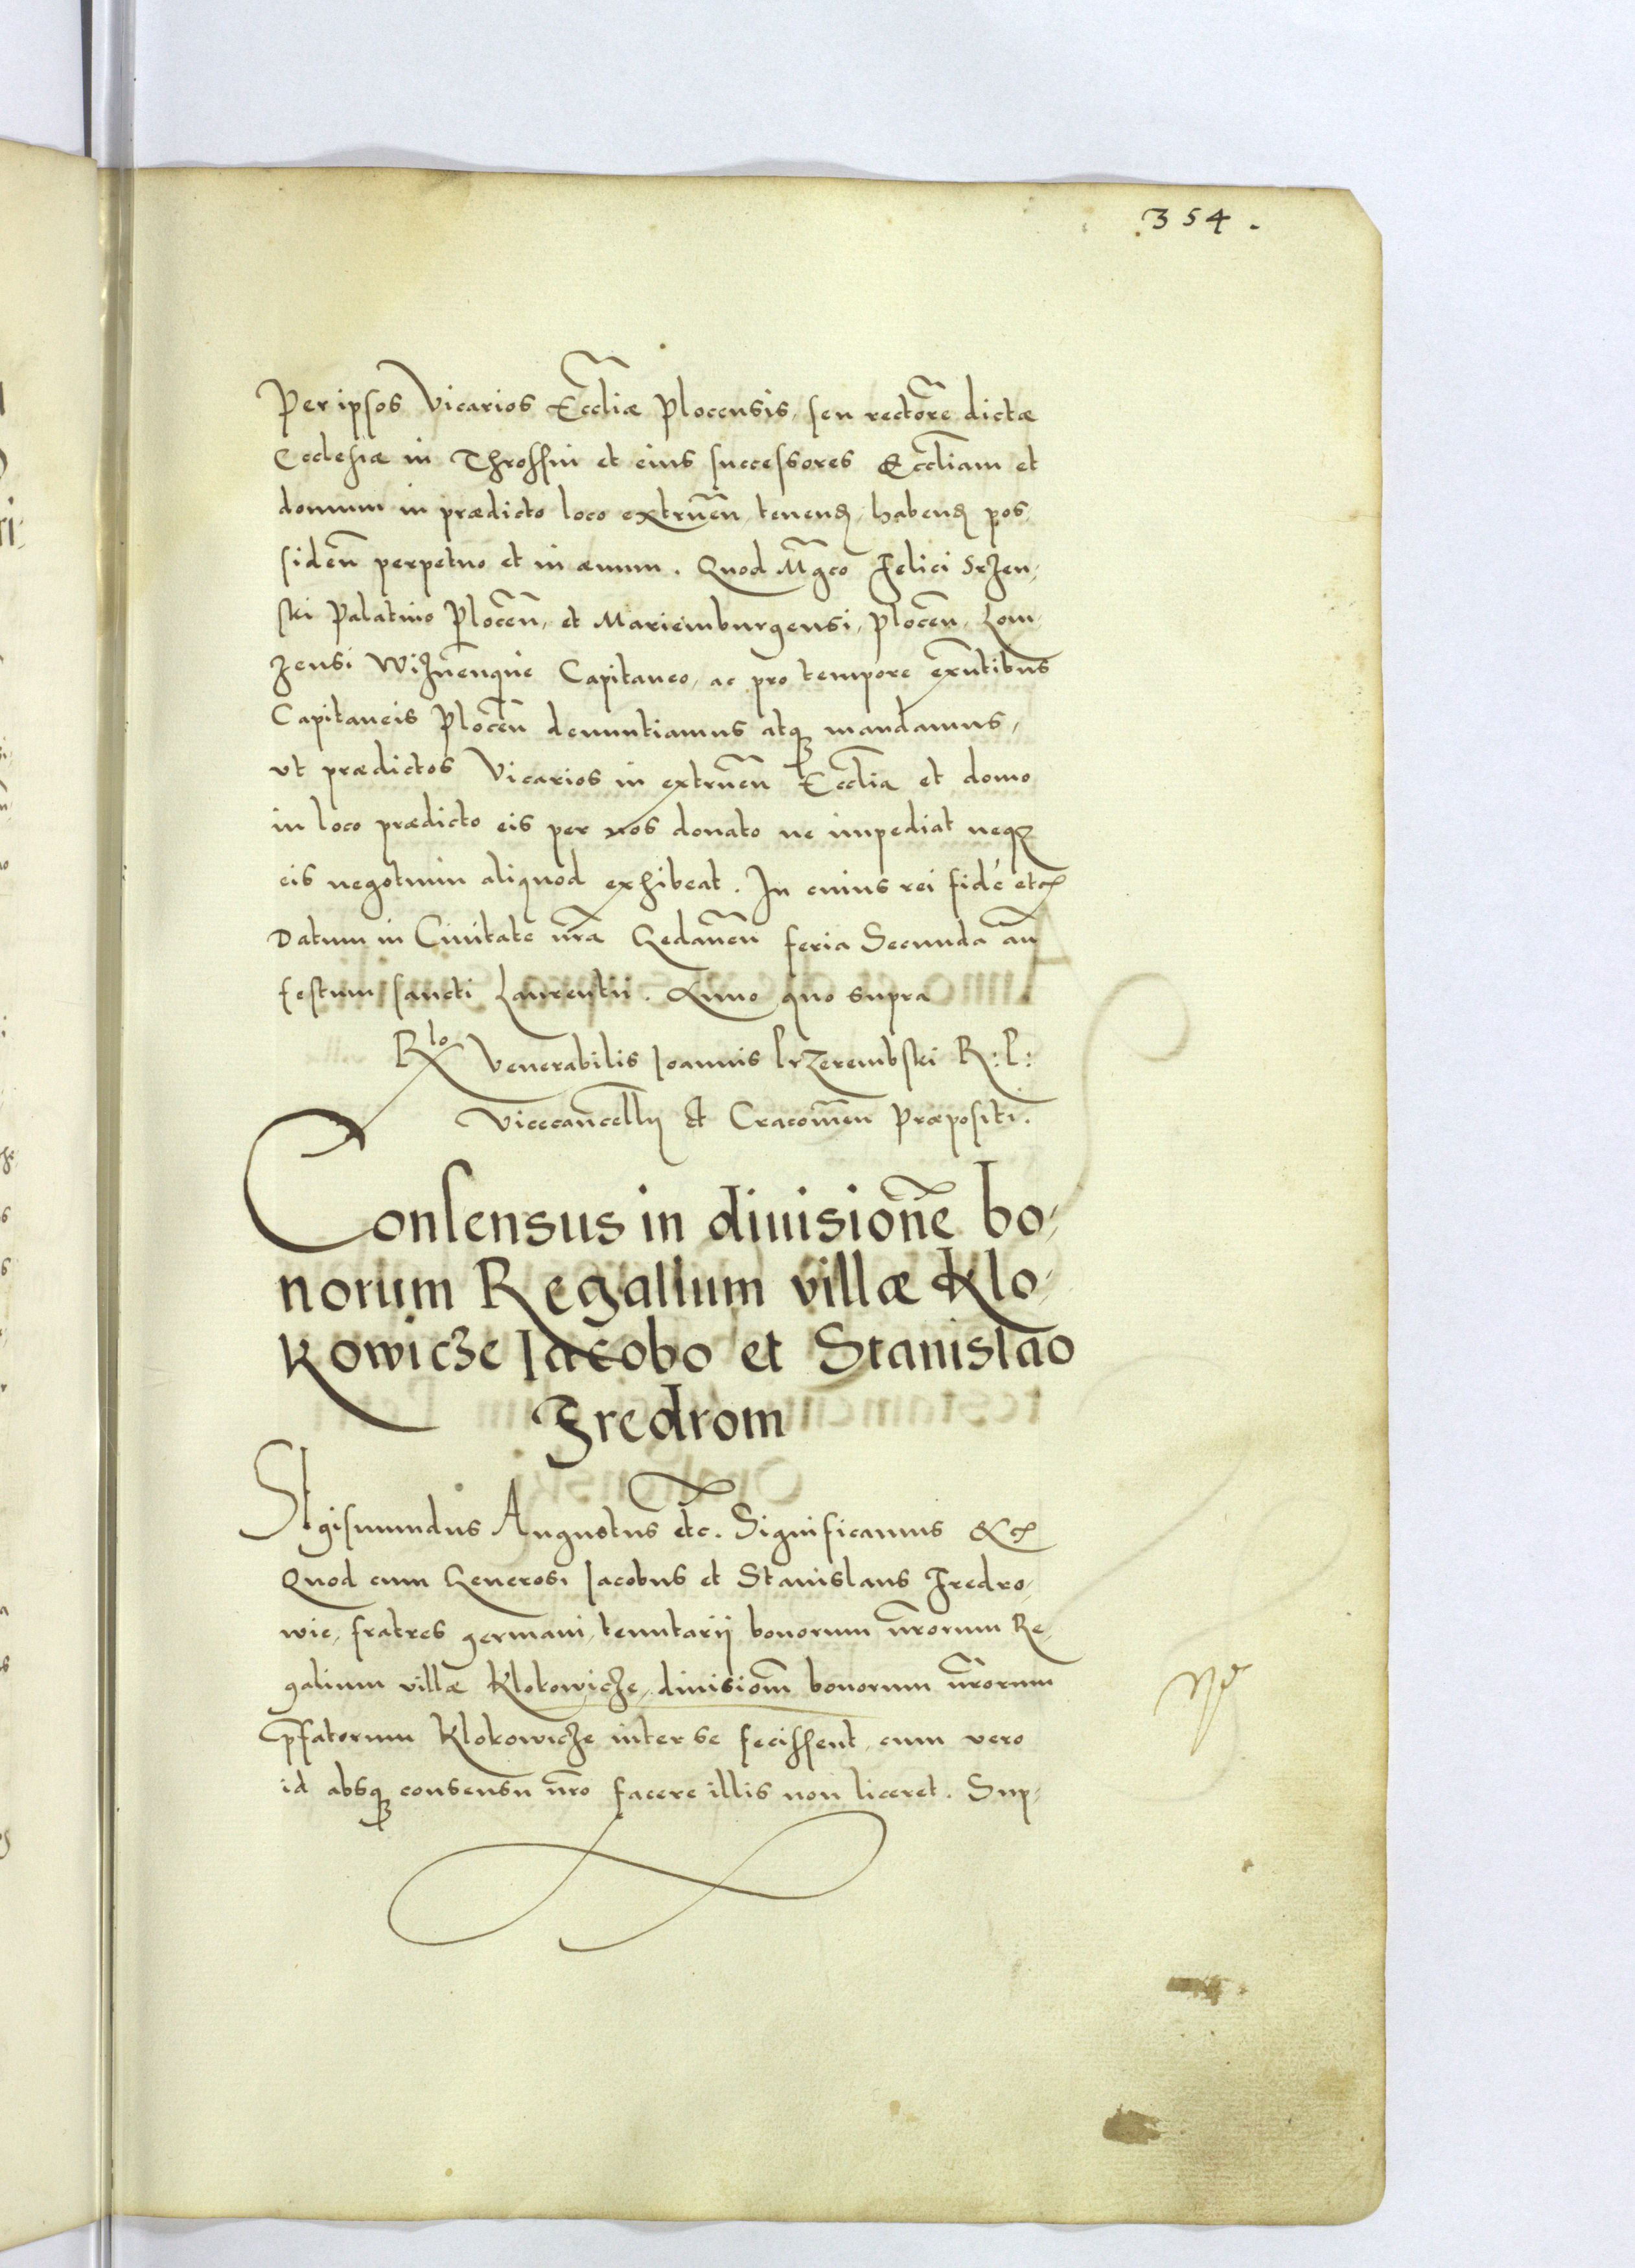 354.
Per ipsos Vicarios Eccliæ Plocensis, seu rectore dictæ
Ecclesiæ in Throssin et eius successores Eccliam et
domum in prædicto loco extruen̄ tenen̄d, habend pos,
siden̄ perpetuo et in æuum. Quod Mgco Felici Srzen,
ski Palatino Plocen̄, et Mariemburgensi, Plocen̄, Lom,
zensi Wiznen̄que Capitaneo, ac pro tempore exn̄tibus
Capitaneis Plocen̄ denuntiamus atq mandamus,
vt prædictos Vicarios in extruen̄ Ecclia et domo
in loco prædicto eis per nos donato ne impediat neq
eis negotium aliquod exhibeat. In cuius rei fidé etc
Datum in Ciuitate nr̄a Gedanen̄ feria Secunda an̄
festum sancti Laurentii. Anno quo supra
Rlo Venerabilis Ioannis Przerembski R: P:
Vicecancellij et Cracouien̄ Præpositi.
Consensus in diuisionē bo,
norum Regalium villæ Klo,
kowicze Iacobo et Stanislao
Fredrom
Sigismundus Augustus etc. Significamus &c
Quod cum Generosi Iacobus et Stanislaus Fredro,
wie, fratres germani, tenutarij bonorum nr̄orum Re,
galium villæ Klokowicze, diuisiom̄ bonorum nr̄orum
p̄fatorum Klokowicze inter se fecissent, cum vero
id absq consensu nr̄o facere illis non liceret. Sup,